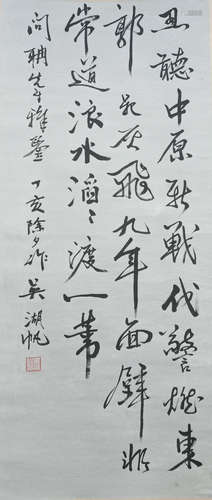 丑聽中原新戰伐驚燃東
郭死灰飛九年面壁非
常道浪水滔〻渡一葦
問聃先生雅鑒 丁亥除夕作 吳湖帆